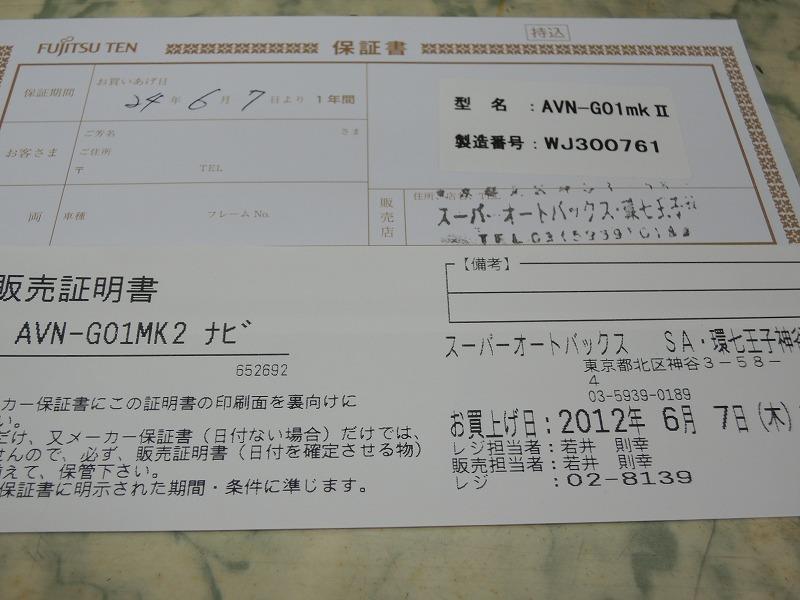 FUJITSU TEN
保証書
持込
保証期間
お買いあげ日
24年6月7日より1年間
型 名：AVN-G01mkⅡ
製造番号：WJ300761
お客さま
ご芳名
さま
ご住所
〒
TEL
両
車種
フレームNo.
販売店
スーパーオートバックス・環七王子
販売証明書
AVN-G01MK2 ナビ
652692
【備考】
スーパーオートバックス SA・環七王子神谷
東京都北区神谷3-58-
4
03-5939-0189
お買上げ日：2012年 6月 7日(木)
レジ担当者：若井 則幸
販売担当者：若井 則幸
レジ ：02-8139
カー保証書にこの証明書の印刷面を裏向けに
い。
だけ、又メーカー保証書（日付ない場合）だけでは、
せんので、必ず、販売証明書（日付を確定させる物）
えて、保管下さい。
保証書に明示された期間・条件に準じます。